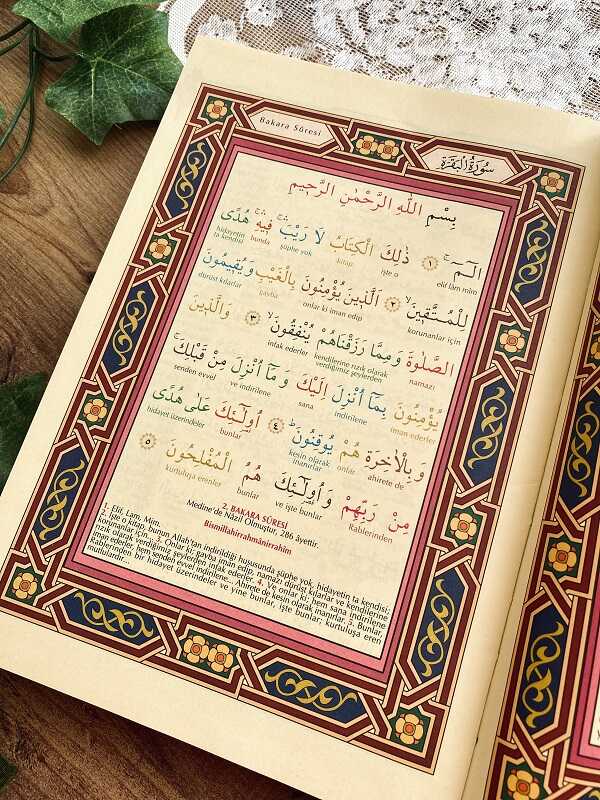 Bakara Sûresi
سُورَةُ الْبَقَرَةِ
بِسْمِ اللّٰهِ الرَّحْمٰنِ الرَّحٖيمِ
الٓمٓ ۚ ﴿١﴾ ذٰلِكَ الْكِتَابُ لَا رَيْبَ ۛ فٖيهِ ۛ هُدًى
elif lâm mîm işte o kitap şüphe yok bunda hidayetin ta kendisi
لِلْمُتَّقٖينَ ۙ ﴿٢﴾ اَلَّذٖينَ يُؤْمِنُونَ بِالْغَيْبِ وَيُقٖيمُونَ
korunanlar için onlar ki iman edip gayba dürüst kılarlar
الصَّلٰوةَ وَمِمَّا رَزَقْنَاهُمْ يُنْفِقُونَ ۙ ﴿٣﴾ وَالَّذٖينَ
namazı kendilerine rızık olarak verdiğimiz şeylerden infak ederler
يُؤْمِنُونَ بِمَٓا اُنْزِلَ اِلَيْكَ وَمَٓا اُنْزِلَ مِنْ قَبْلِكَ ۚ
iman ederler indirilene sana ve indirilene senden evvel
وَبِالْاٰخِرَةِ هُمْ يُوقِنُونَ ؕ ﴿٤﴾ اُو۬لٰٓئِكَ عَلٰى هُدًى
ahirete de onlar kesin olarak inanırlar bunlar hidayet üzerindeler
مِنْ رَبِّهِمْ وَاُو۬لٰٓئِكَ هُمُ الْمُفْلِحُونَ ﴿٥﴾
Rablerinden ve işte bunlar bunlar kurtuluşa erenler
2. BAKARA SÛRESİ
Medine'de Nâzil Olmuştur, 286 âyettir.
Bismillahirrahmânirrahîm
1. Elif, Lam, Mim.
2. İşte o kitap, bunun Allah'tan indirildiği hususunda şüphe yok, hidayetin ta kendisi;
korunanlar için... 3. Onlar ki; gayba iman edip, namazı dürüst kılarlar ve kendilerine
rızık olarak verdiğimiz şeylerden infak ederler. 4. Ve onlar ki; hem sana indirilene
iman ederler, hem senden evvel indirilene... Ahirete de kesin olarak inanırlar. 5. Bunlar,
Rablerinden bir hidayet üzerindeler ve yine bunlar, işte bunlar; kurtuluşa eren
mutlulardır...